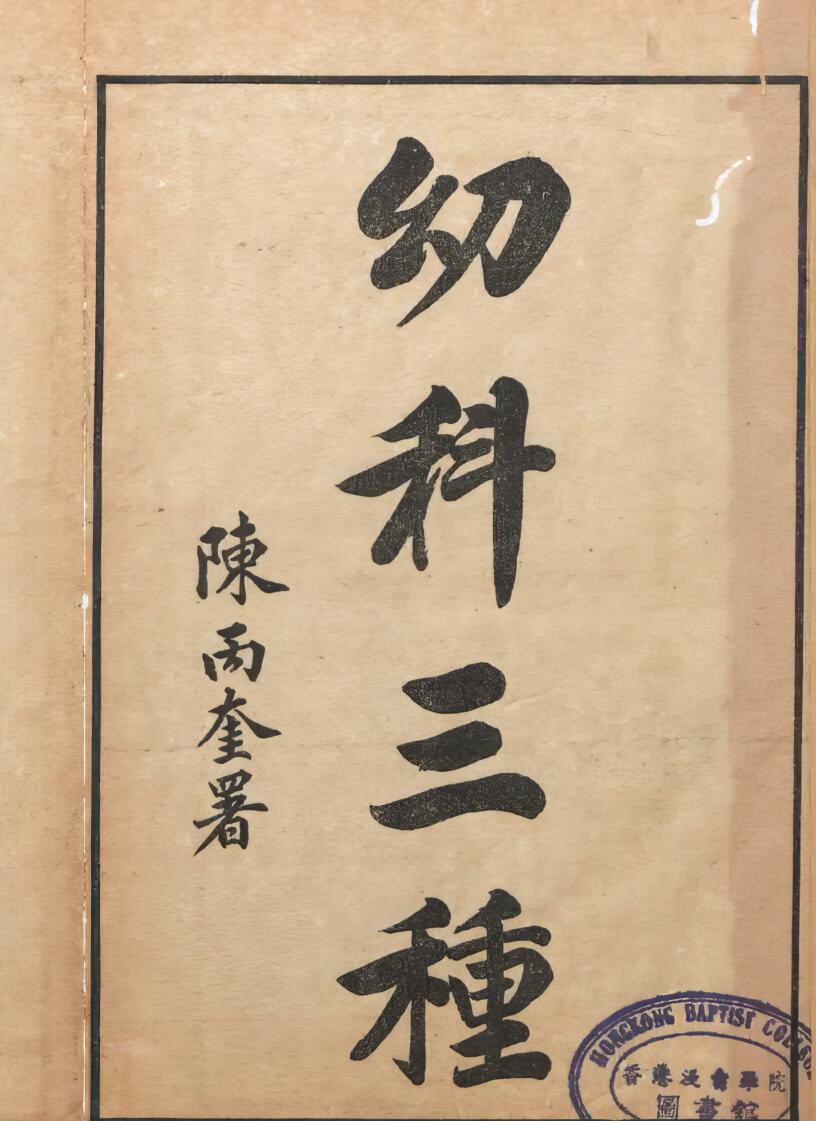 幼科三種
陳丙奎署
HONGKONG BAPTIST COLLEGE
香港浸會學院
圖書館